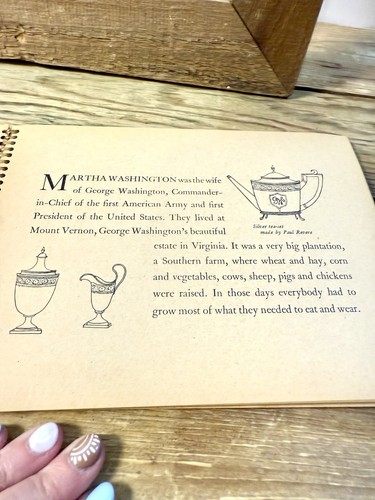 MARTHA WASHINGTON was the wife
of George Washington, Commander-
in-Chief of the first American Army and first
President of the United States. They lived at
Mount Vernon, George Washington's beautiful
Silver tea-set
made by Paul Revere
estate in Virginia. It was a very big plantation,
a Southern farm, where wheat and hay, corn
and vegetables, cows, sheep, pigs and chickens
were raised. In those days everybody had to
grow most of what they needed to eat and wear.